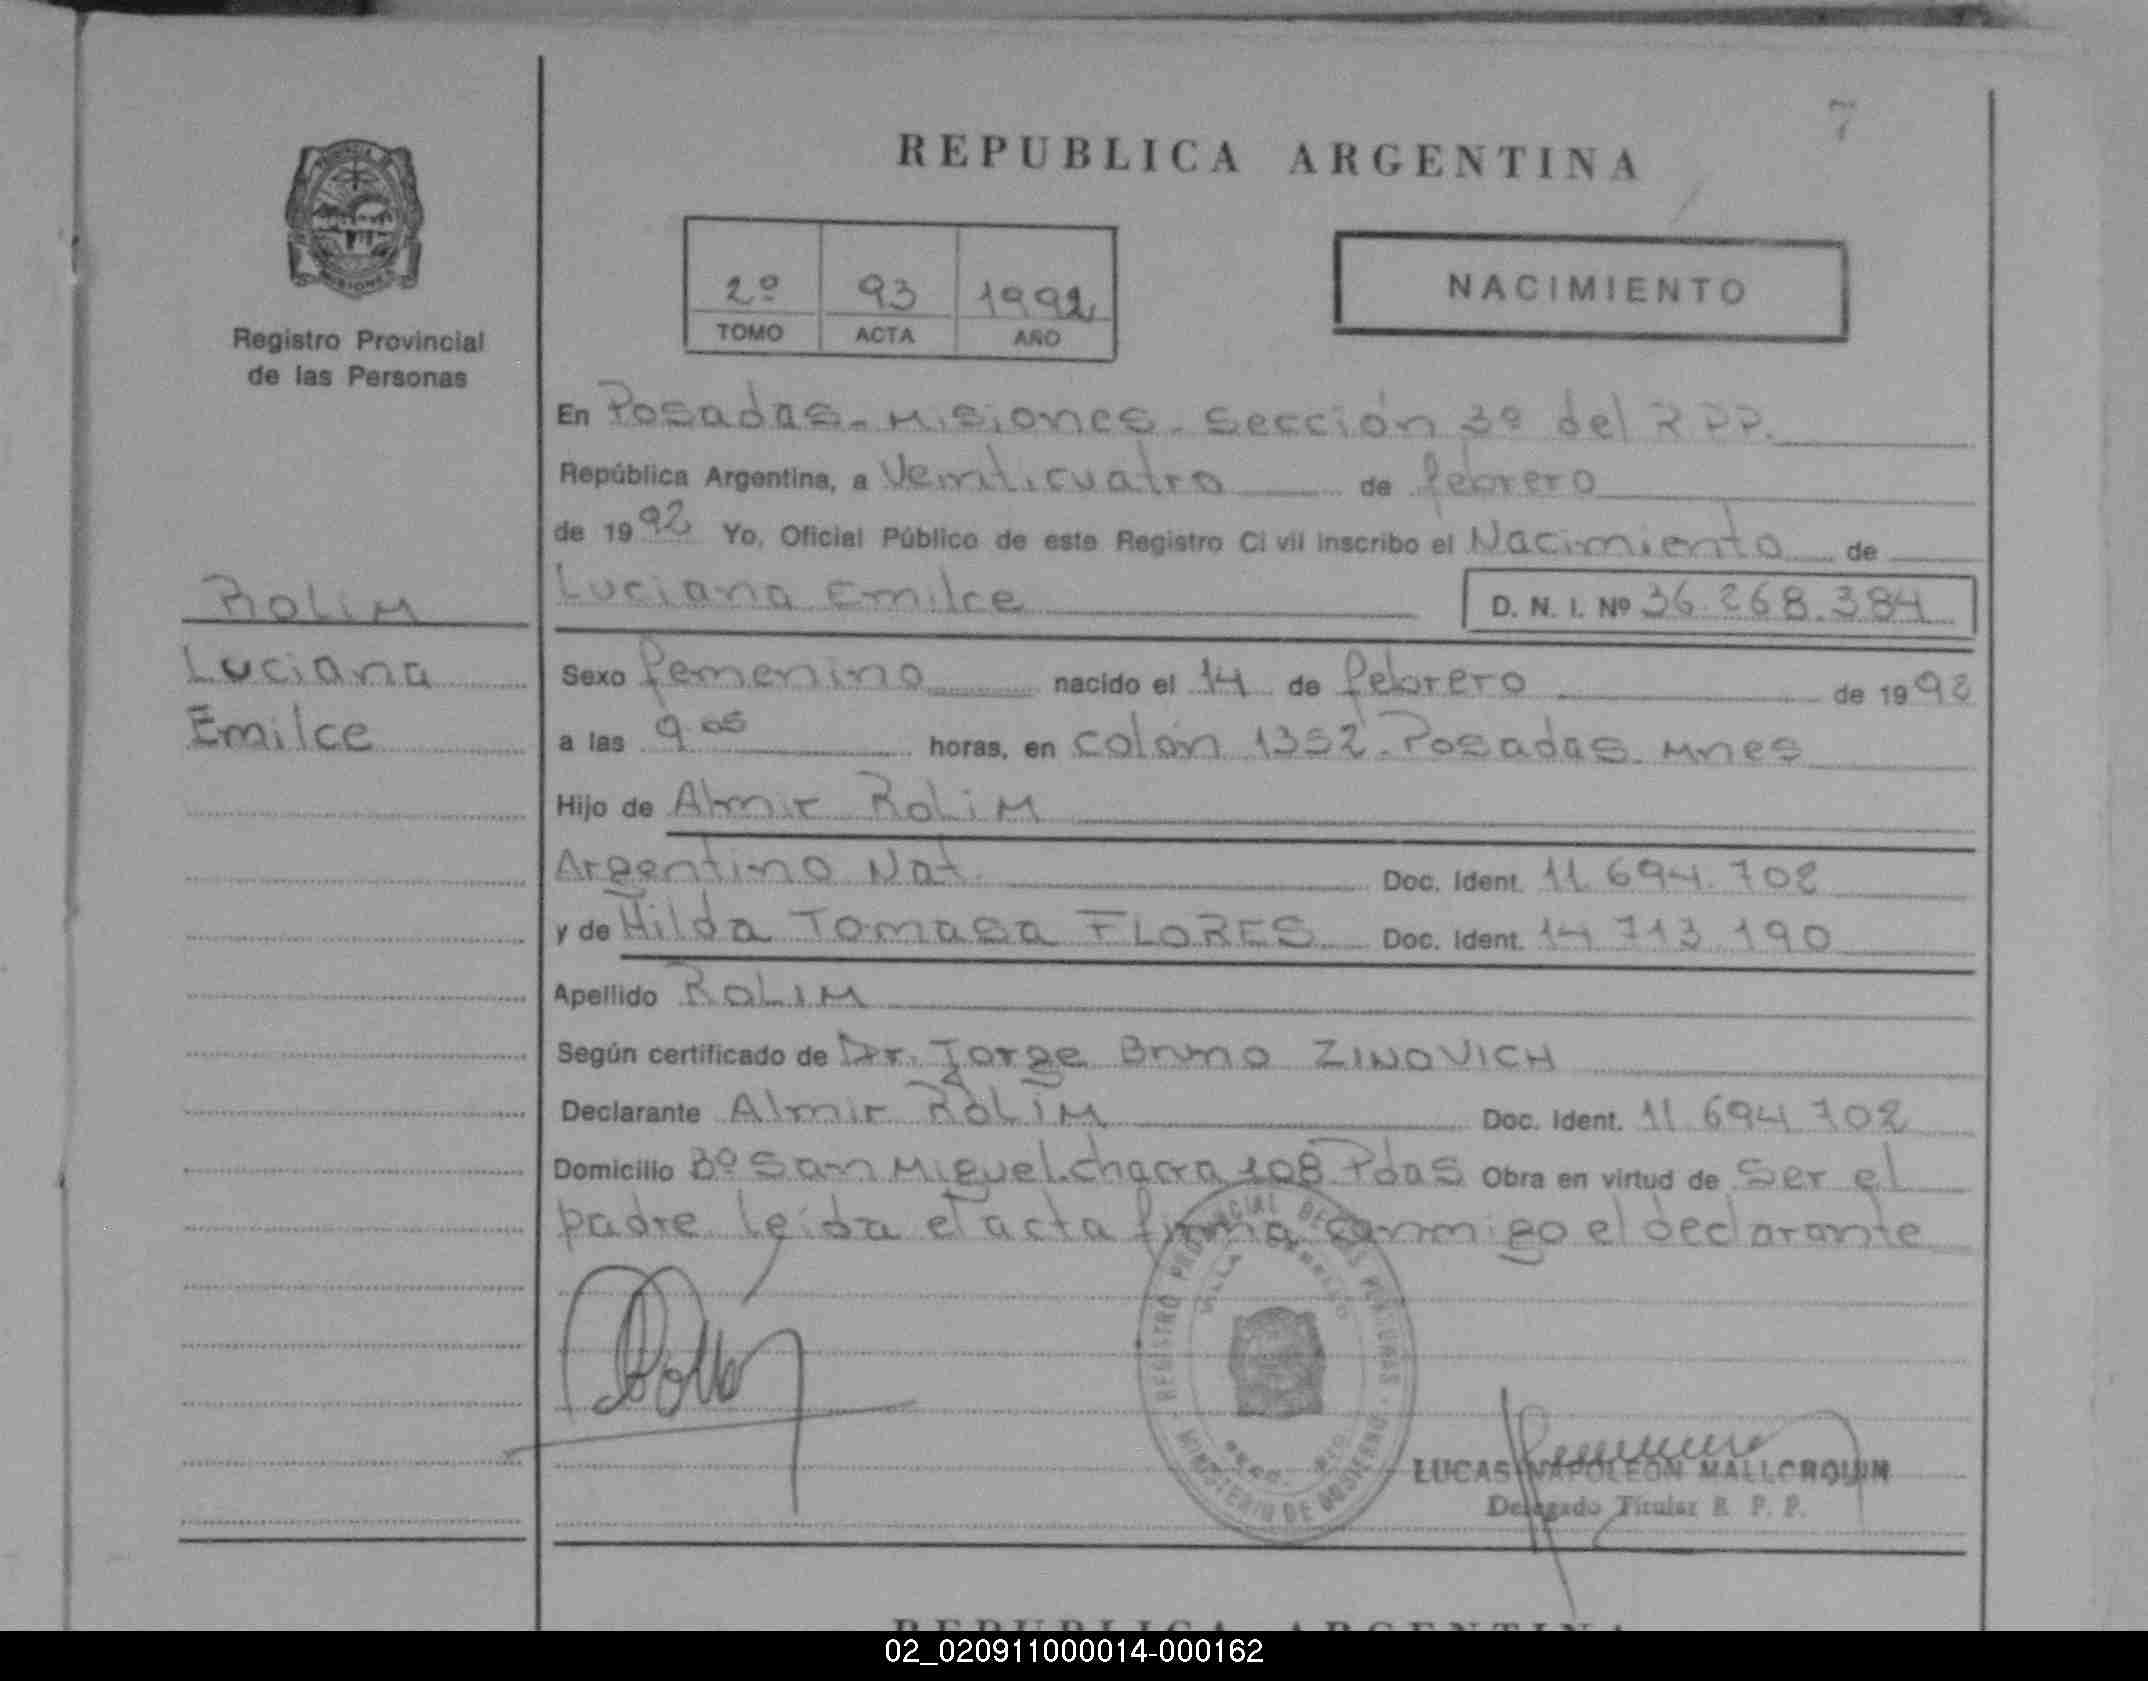 7
REPUBLICA ARGENTINA
2º 93 1992
TOMO ACTA AÑO
NACIMIENTO
Registro Provincial
de las Personas
En Posadas - Misiones - Sección 3º del RPP.
República Argentina, a Veinticuatro de febrero
de 1992 Yo, Oficial Público de este Registro Civil inscribo el Nacimiento de
Luciana Emilce D. N. I. Nº 36.268.384
ROLIM
Luciana
Emilce
Sexo femenino nacido el 14 de febrero de 1992
a las 9.05 horas, en colón 1352 - Posadas - Mnes
Hijo de Almir ROLIM
Argentino Nat. Doc. Ident. 11.694.702
y de Hilda Tomasa FLORES Doc. Ident. 14.713.190
Apellido ROLIM
Según certificado de Dr. Jorge Bruno ZINOVICH
Declarante Almir ROLIM Doc. Ident. 11.694.702
Domicilio Bº San Miguel - chacra 108 Pdas Obra en virtud de ser el
padre leída el acta firma conmigo el declarante
REGISTRO PROVINCIAL DE LAS PERSONAS
VILLA
MINISTERIO DE GOBIERNO
LUCAS NAPOLEON MALLORQUIN
Delegado Titular R. P. P.
REPUBLICA ARGENTINA
02_020911000014-000162